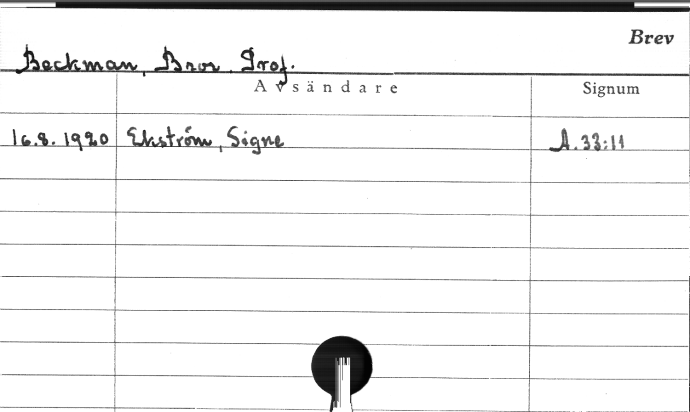 Brev
Beckman, Bror Prof.
Avsändare Signum
16.8.1920 Ekström, Signe A.33:11